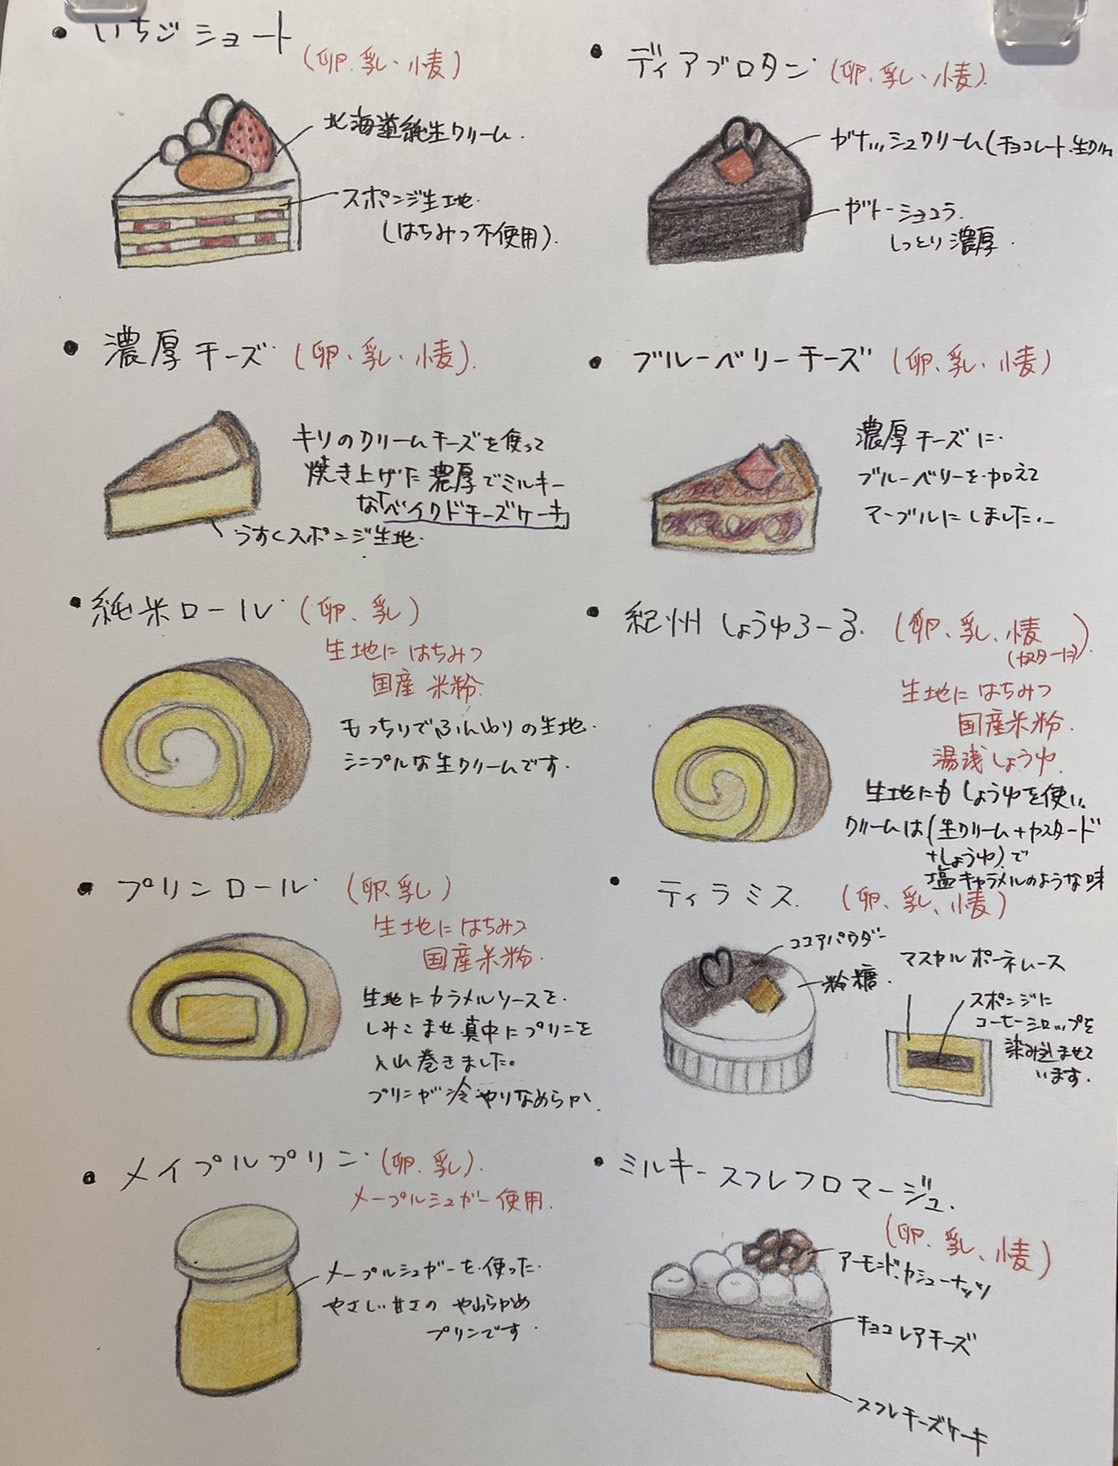 ・いちごショート
(卵.乳.小麦)
北海道純生クリーム.
スポンジ生地.
(はちみつ不使用).
・ディアブロタン (卵.乳.小麦).
ガナッシュクリーム(チョコレート.生クリーム
ガトーショコラ.
しっとり濃厚.
・濃厚チーズ (卵.乳.小麦).
キリのクリームチーズを使って
焼き上げた濃厚でミルキー
な「ベイクドチーズケーキ
うすくスポンジ生地.
・ブルーベリーチーズ (卵.乳.小麦)
濃厚チーズに.
ブルーベリーを加えて
マーブルにしました.
・純米ロール (卵.乳)
生地にはちみつ
国産米粉.
もっちりでふんわりの生地.
シンプルな生クリームです.
・紀州しょうゆろーる. (卵.乳.小麦)
生地にはちみつ
国産米粉.
湯浅しょうゆ.
生地にもしょうゆを使い.
クリームは(生クリーム+カスタード
+しょうゆ)で
塩キャラメルのような味
・プリンロール (卵.乳)
生地にはちみつ
国産米粉.
生地にカラメルソースを.
しみこませ真中にプリンを
入れ巻きました。
プリンが冷やりなめらか.
・ティラミス. (卵.乳.小麦)
ココアパウダー
粉糖.
マスカルポーネムース
スポンジに
コーヒーシロップを
染み込ませて
います.
・メイプルプリン (卵.乳).
メープルシュガー使用.
メープルシュガーを使った.
やさしい甘さのやわらかめ
プリンです.
・ミルキースフレフロマージュ.
(卵.乳.小麦)
アーモンド.カシューナッツ
チョコレアチーズ
スフレチーズケーキ